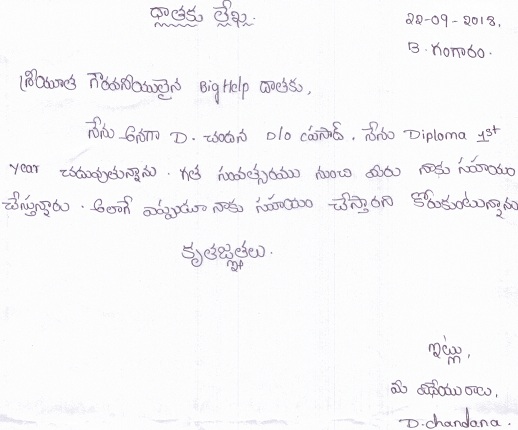 ధాతకు లేఖ.
22-09-2018.
B. గంగారం.
శ్రీయూత గౌరవనీయులైన BigHelp దాతకు,
నేను అనగా D. చందన D/o ప్రసాద్. నేను Diploma 1st
year చదువుతున్నాను. గత సంవత్సరము నుంచి మీరు నాకు సహాయం
చేస్తున్నారు. అలాగే ఎప్పుడూ నాకు సహాయం చేస్తారని కోరుకుంటున్నాను
కృతజ్ఞతలు.
ఇట్లు,
మీ విదేయురాలు,
D. chandana.